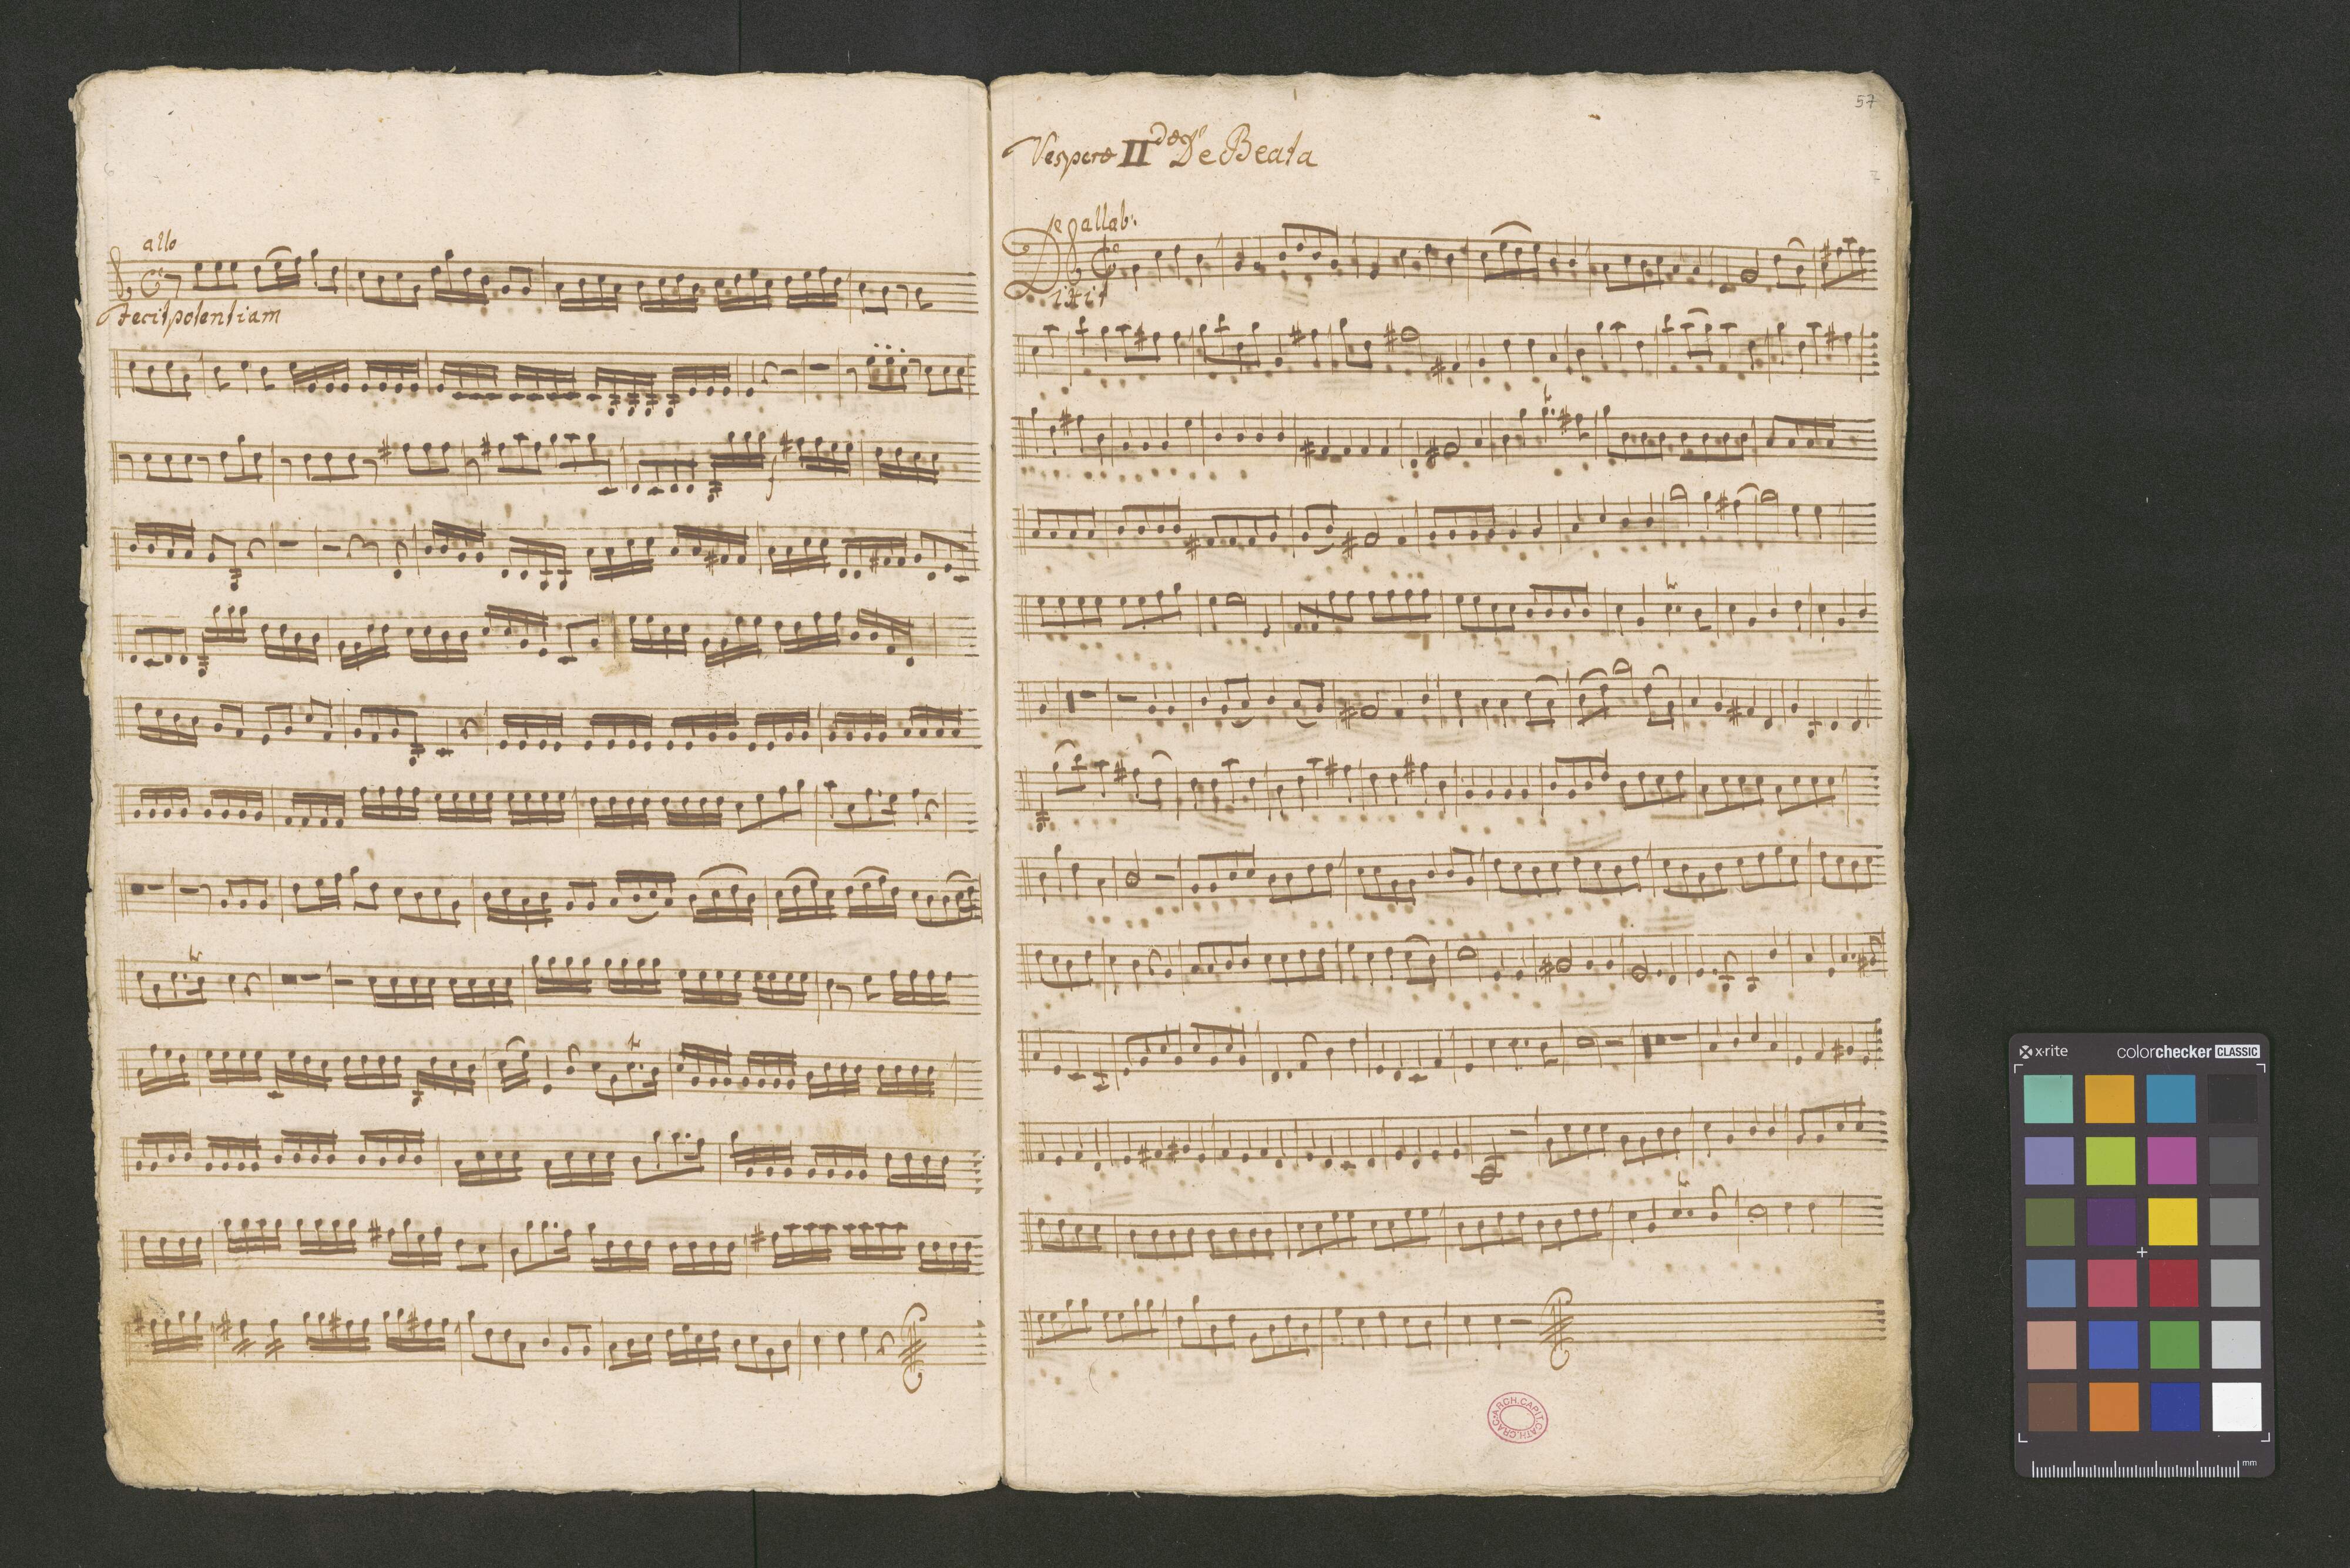 allo
Fecit potentiam
57
Vesperæ II dæ De Beata
allab:
Dixit
ARCH. CAPIT. CATH. CRAC.
x-rite
colorchecker CLASSIC
mm